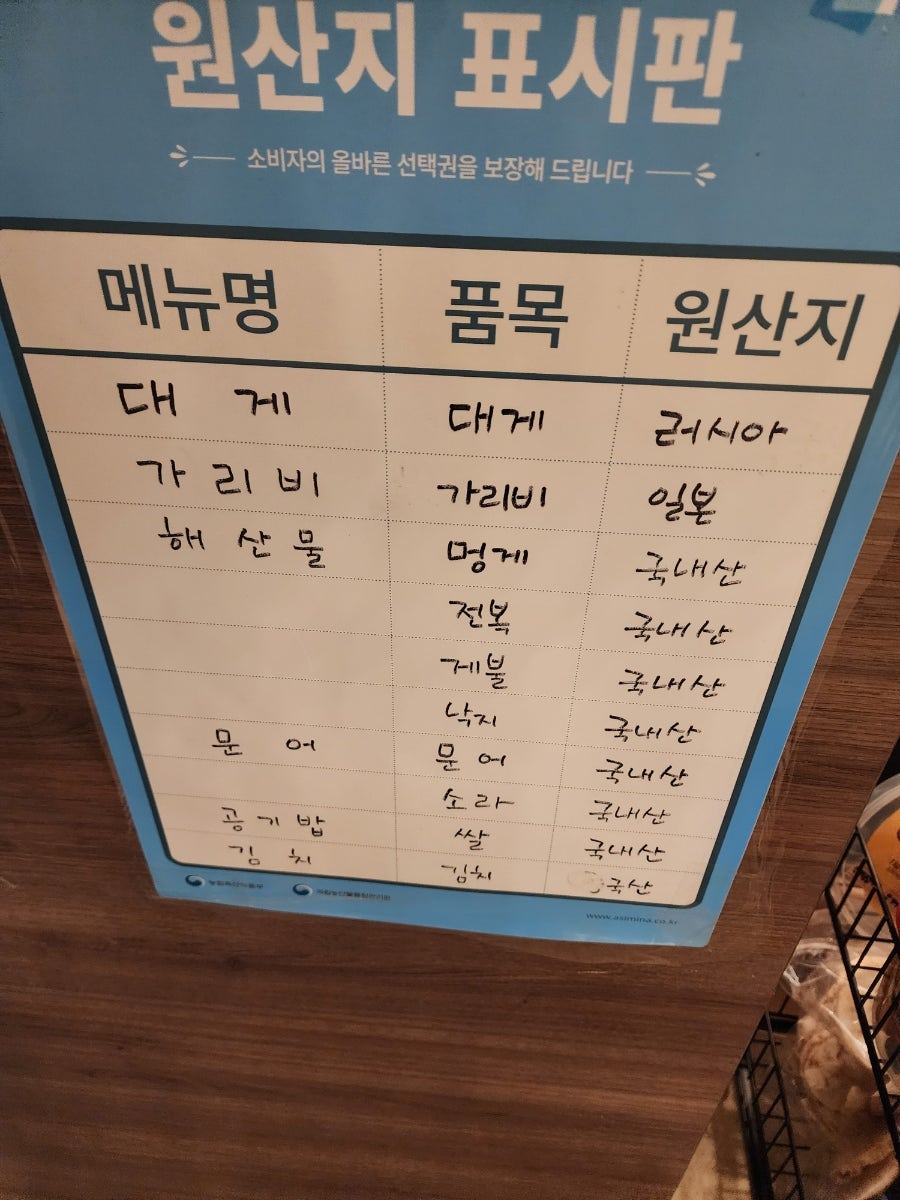 원산지 표시판
소비자의 올바른 선택권을 보장해 드립니다
메뉴명 품목 원산지
대 게 대게 러시아
가 리 비 가리비 일본
해 산 물 멍게 국내산
전복 국내산
게불 국내산
낙지 국내산
문 어 문어 국내산
소라 국내산
공 기 밥 쌀 국내산
김 치 김치
농림축산식품부 국립농산물품질관리원
www.asimina.co.kr